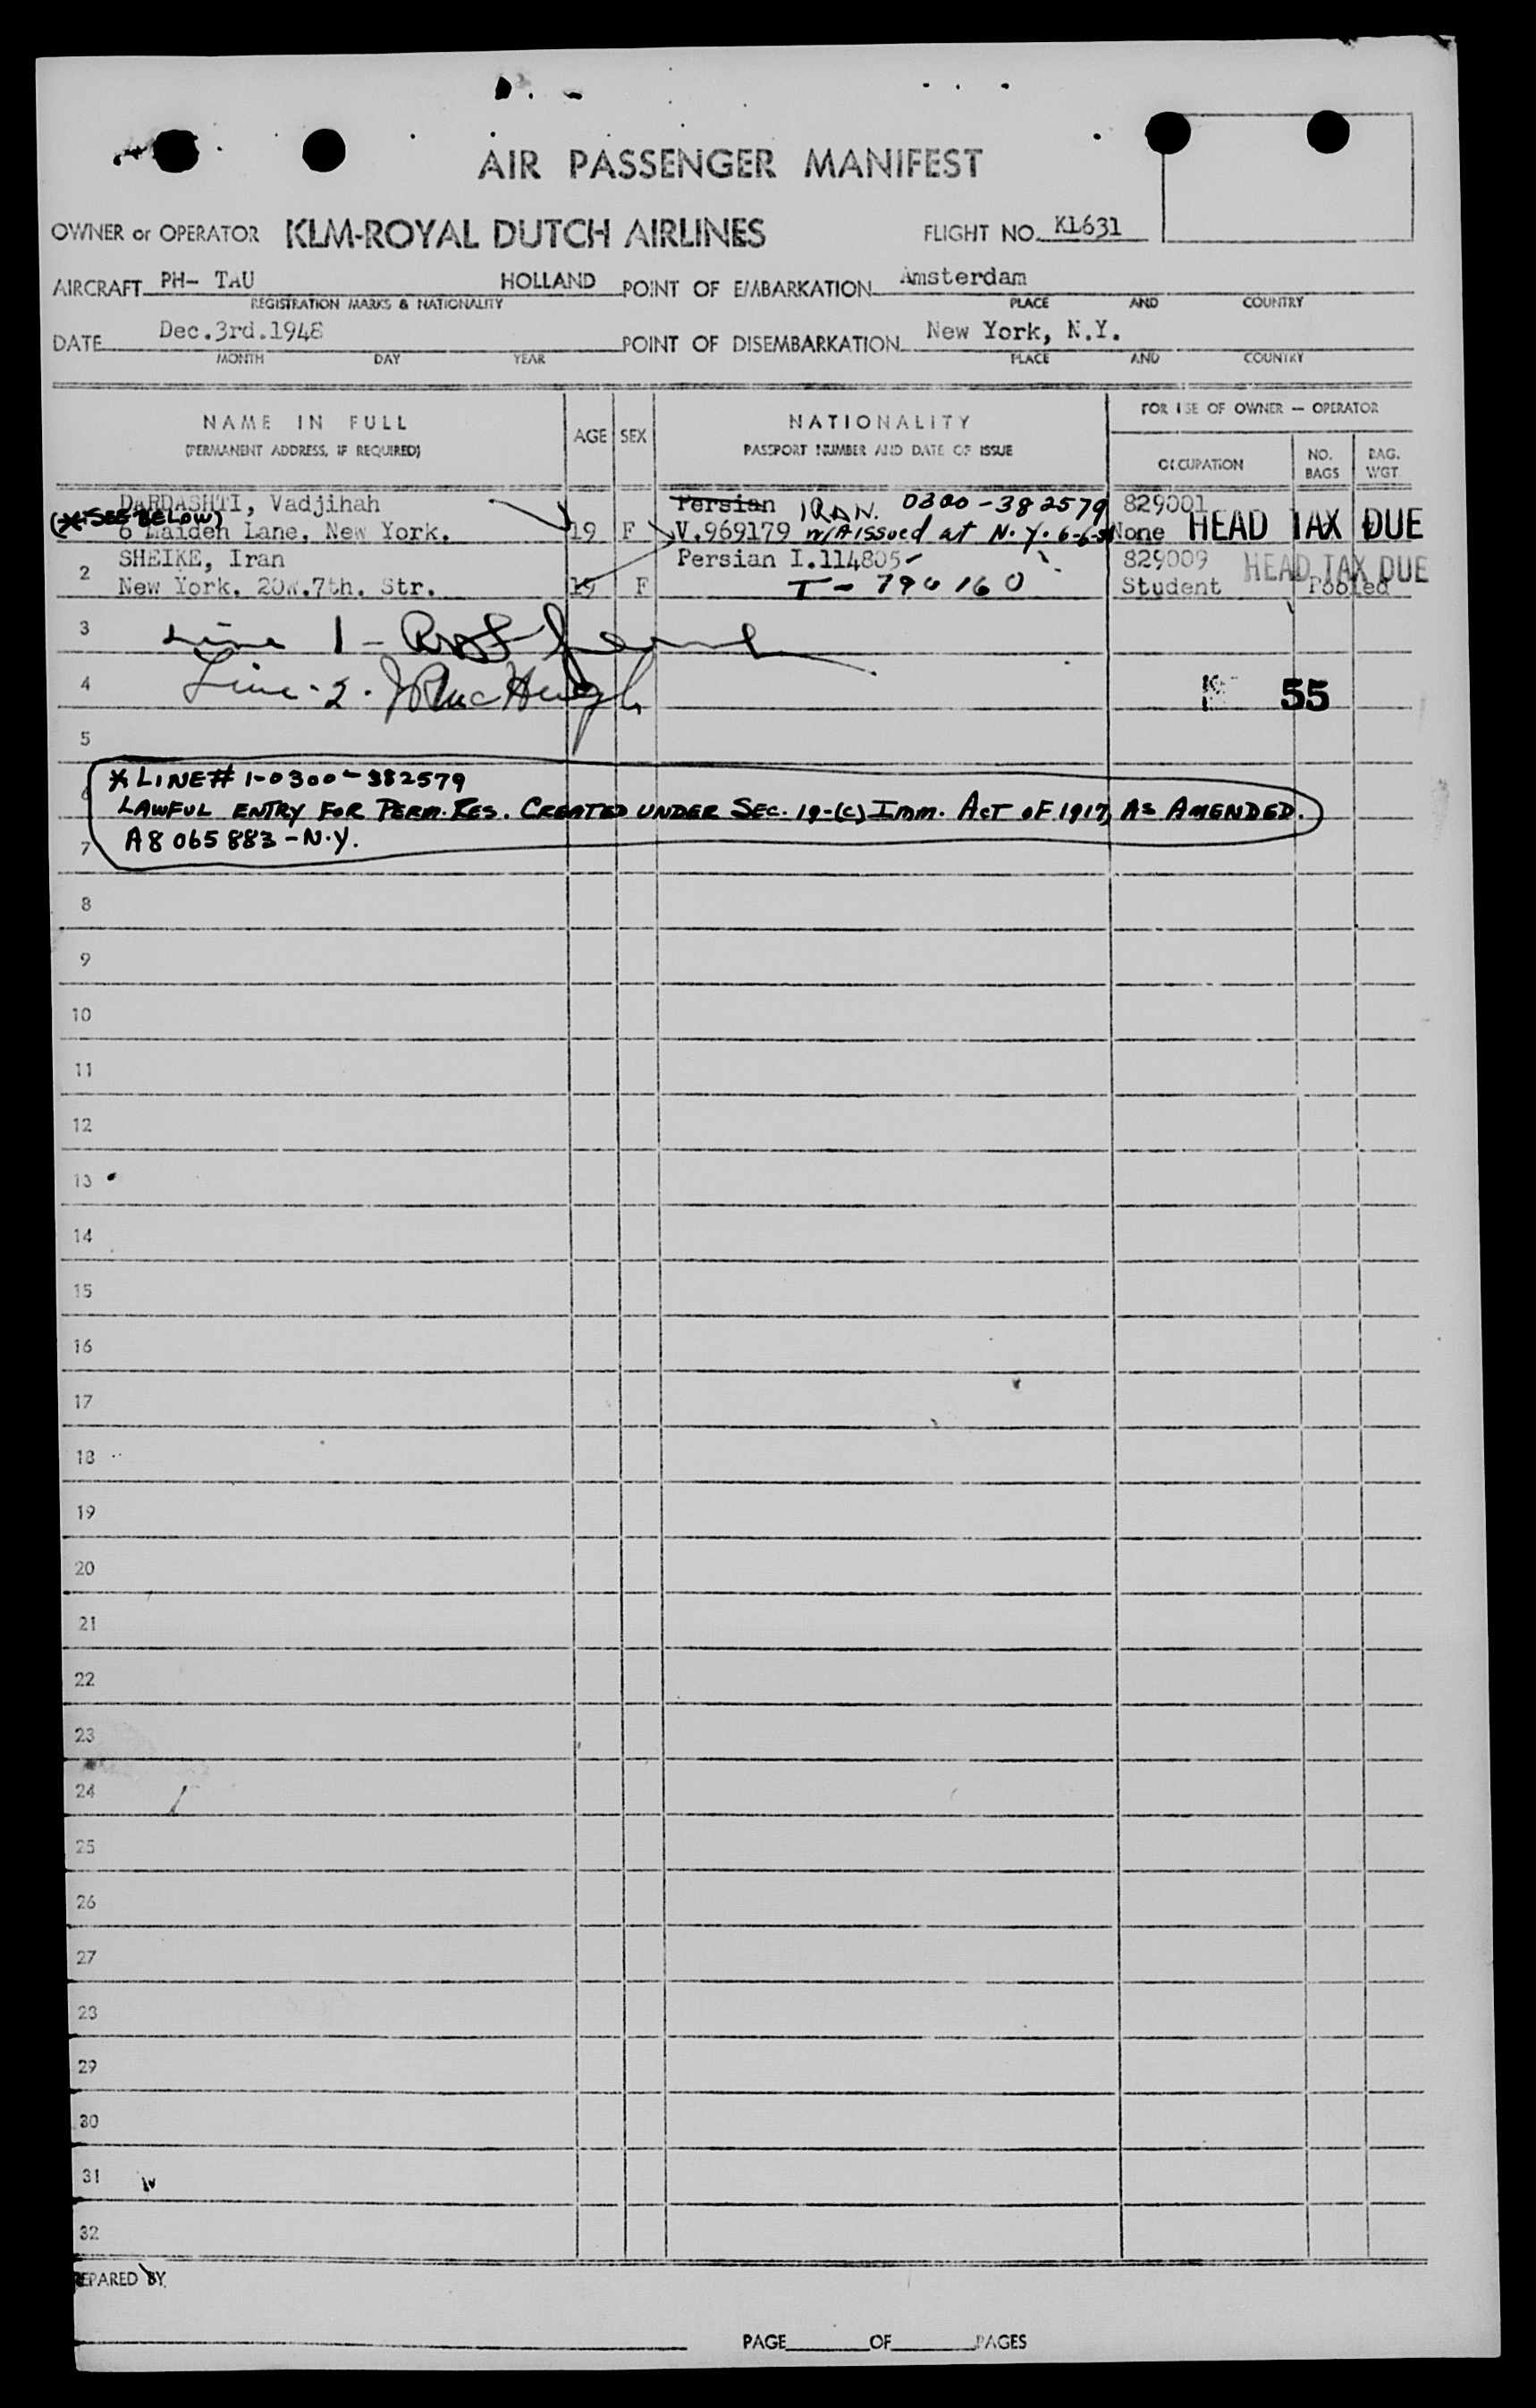 AIR PASSENGER MANIFEST
OWNER or OPERATOR KLM-ROYAL DUTCH AIRLINES FLIGHT NO. KL631
AIRCRAFT PH- TAU HOLLAND POINT OF EMBARKATION Amsterdam
REGISTRATION MARKS & NATIONALITY PLACE AND COUNTRY
DATE Dec.3rd.1948 POINT OF DISEMBARKATION New York, N.Y.
MONTH DAY YEAR PLACE AND COUNTRY
NAME IN FULL AGE SEX NATIONALITY FOR USE OF OWNER — OPERATOR
(PERMANENT ADDRESS, IF REQUIRED) PASSPORT NUMBER AND DATE OF ISSUE OCCUPATION NO. BAGS BAG. WGT.
DARDASHTI, Vadjihah Persian IRAN. 0300-382579 829001
(* SEE BELOW)
6 Maiden Lane, New York. 19 F V.969179 issued at N.Y. None HEAD TAX DUE
SHEIKE, Iran Persian I.114805 829009 HEAD TAX DUE
2 New York. 20W.7th. Str. 19 F T-790160 Student Pooled
3 Line 1 -
4 Line-2. 55
5
* LINE# 1-0300-382579
6 LAWFUL ENTRY FOR PERM. RES. CREATED UNDER SEC. 19-(C) IMM. ACT OF 1917, AS AMENDED.
7 A8 065 883-N.Y.
8
9
10
11
12
13
14
15
16
17
18
19
20
21
22
23
24
25
26
27
28
29
30
31
32
PREPARED BY
PAGE OF PAGES